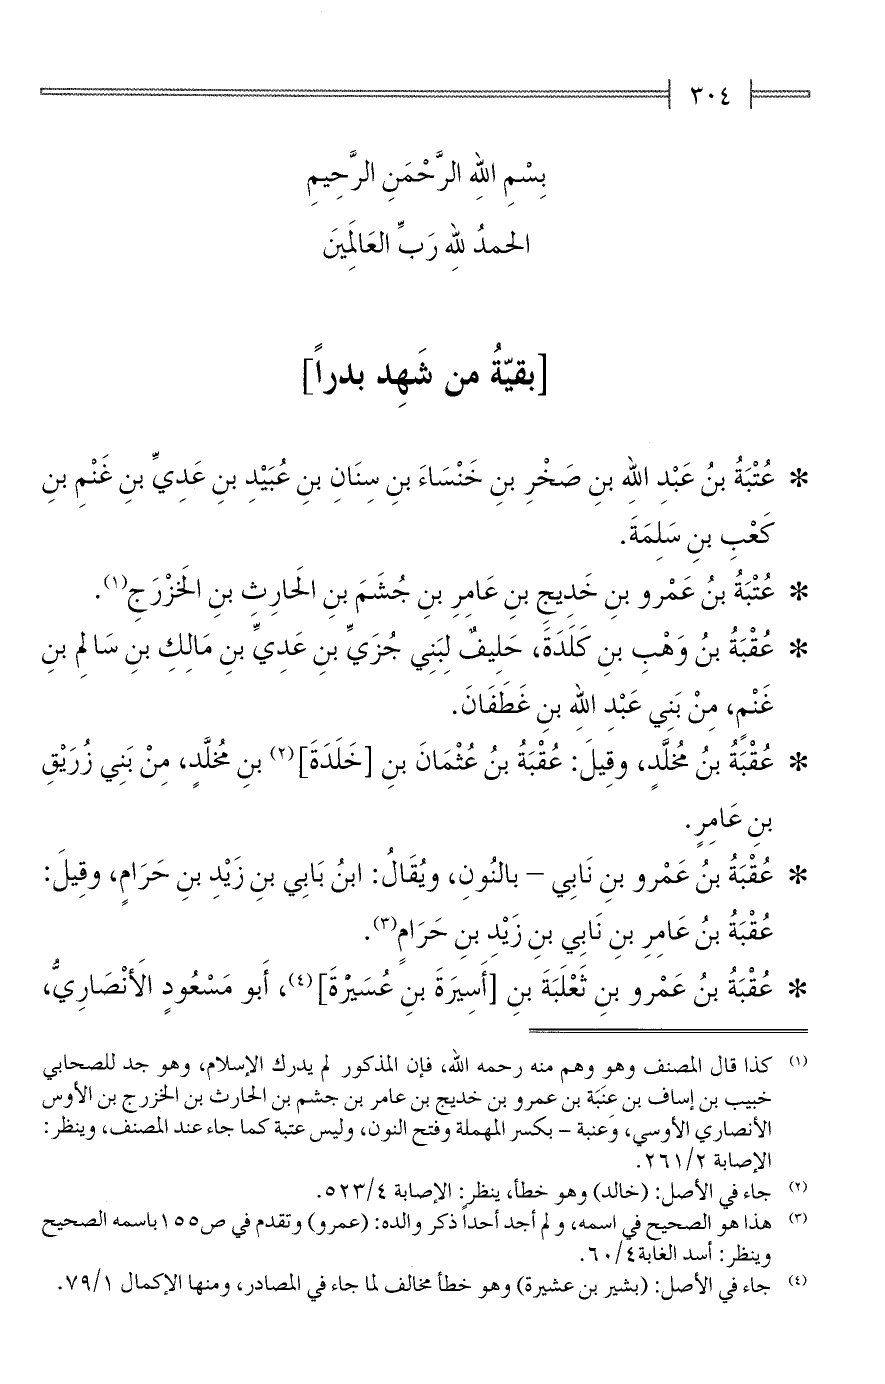 ٣٠٤
بِسْمِ اللهِ الرَّحْمَنِ الرَّحِيمِ
الحمدُ للهِ رَبِّ العَالَمِينَ
[بقيّةُ من شَهِد بدراً]
* عُتْبَةُ بنُ عَبْدِ اللهِ بنِ صَخْرِ بنِ خَنْسَاءَ بنِ سِنَانِ بنِ عُبَيْدِ بنِ عَدِيِّ بنِ غَنْمِ بنِ
كَعْبِ بنِ سَلِمَةَ.
* عُتْبَةُ بنُ عَمْرو بنِ خَدِيجِ بنِ عَامِرِ بنِ جُشَمَ بنِ الحَارِثِ بنِ الخَزْرَجِ(١).
* عُقْبَةُ بنُ وَهْبِ بنِ كَلَدَةَ، حَلِيفٌ لِبَنِي جُزَيِّ بنِ عَدِيِّ بنِ مَالِكِ بنِ سَالمِ بنِ
غَنْمٍ، مِنْ بَنِي عَبْدِ اللهِ بنِ غَطَفَانَ.
* عُقْبَةُ بنُ مُخلَّدٍ، وقِيلَ: عُقْبَةُ بنُ عُثْمَانَ بنِ [خَلَدَةَ](٢) بنِ مُخلَّدٍ، مِنْ بَنِي زُرَيْقِ
بنِ عَامِرٍ.
* عُقْبَةُ بنُ عَمْرو بنِ نَابِي – بالنُونِ، ويُقَالُ: ابنُ بَابِي بنِ زَيْدِ بنِ حَرَامٍ، وقِيلَ:
عُقْبَةُ بنُ عَامِرِ بنِ نَابِي بنِ زَيْدِ بنِ حَرَامٍ(٣).
* عُقْبَةُ بنُ عَمْرو بنِ ثَعْلَبَةَ بنِ [أَسِيرَةَ بنِ عُسَيْرْةَ](٤)، أَبو مَسْعُودٍ الأَنْصَارِيُّ،
(١) كذا قال المصنف وهو وهم منه رحمه الله، فإن المذكور لم يدرك الإسلام، وهو جد للصحابي
خبيب بن إساف بن عنَبَة بن عمرو بن خديج بن عامر بن جشم بن الحارث بن الخزرج بن الأوس
الأنصاري الأوسي، وعنبة – بكسر المهملة وفتح النون، وليس عتبة كما جاء عند المصنف، وينظر:
الإصابة ٢/ ٢٦١.
(٢) جاء في الأصل: (خالد) وهو خطأ، ينظر: الإصابة ٤/ ٥٢٣.
(٣) هذا هو الصحيح في اسمه، ولم أجد أحداً ذكر والده: (عمرو) وتقدم في ص١٥٥ باسمه الصحيح
وينظر: أسد الغابة٤/ ٦٠.
(٤) جاء في الأصل: (بشير بن عشيرة) وهو خطأ مخالف لما جاء في المصادر، ومنها الإكمال ١/ ٧٩.